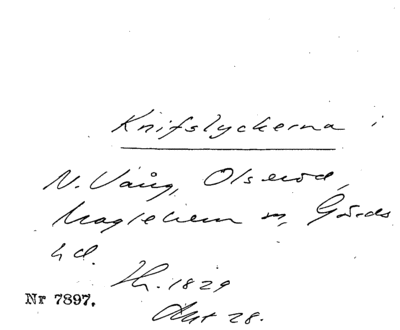 Knifslyckerna
N. Vång, Olseröd,
Maglehem sn, Gärds
hd.
Nr 7897.
Akt 28.